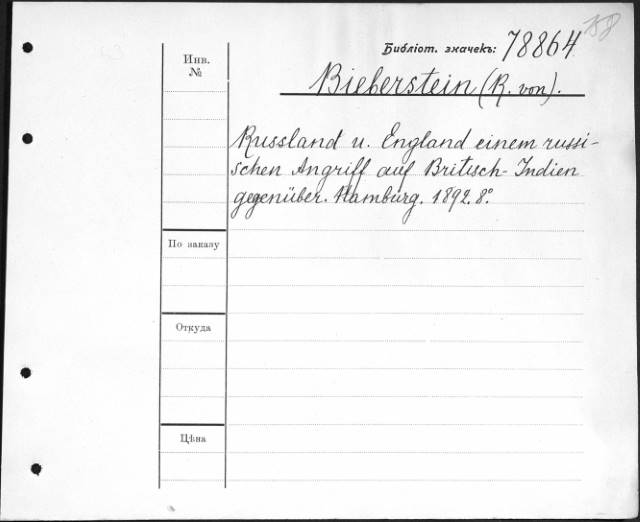 Библіот. значекъ: 78864
Инв.
№
Bieberstein (R. von).
Russland u. England einem russi-
schen Angriff auf Britisch-Indien
gegenüber. Hamburg. 1892. 8°.
По заказу
Откуда
Цѣна